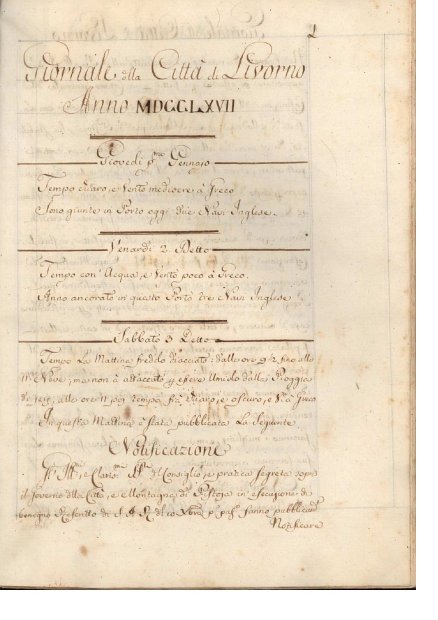 1
Giornale della Città di Livorno
Anno MDCCLXVII
Giovedi p.mo Gennajo
Tempo chiaro, e Vento mediocre à Greco
Sono giunte in Porto oggi due Navi Inglese.
Venardi 2. Detto
Tempo con Acqua, e Vento poco à Greco.
Anno ancorato in questo Porto tre Navi Inglese
Sabbato 3 Detto
Tempo La Mattina freddo diacciato: dalle ore 9½ fino alle
11 Neve, ma non à attaccato p essere Umido dalla Pioggia
di jeri, alle ore 11 poi Tempo frà chiaro, e oscuro, e V.o à Greco
In questa Mattina è stata pubblicata La Seguente
Notificazione
Gl' Ill.mi, e Clariss.mi del Consiglio, e pratica segreta sopra
il Governo della Città, e Montagna di Pistoja in esecuzione di
benigno Rescritto di S. A. R. del 10 Xbre fanno pubblicam.te
Notificare